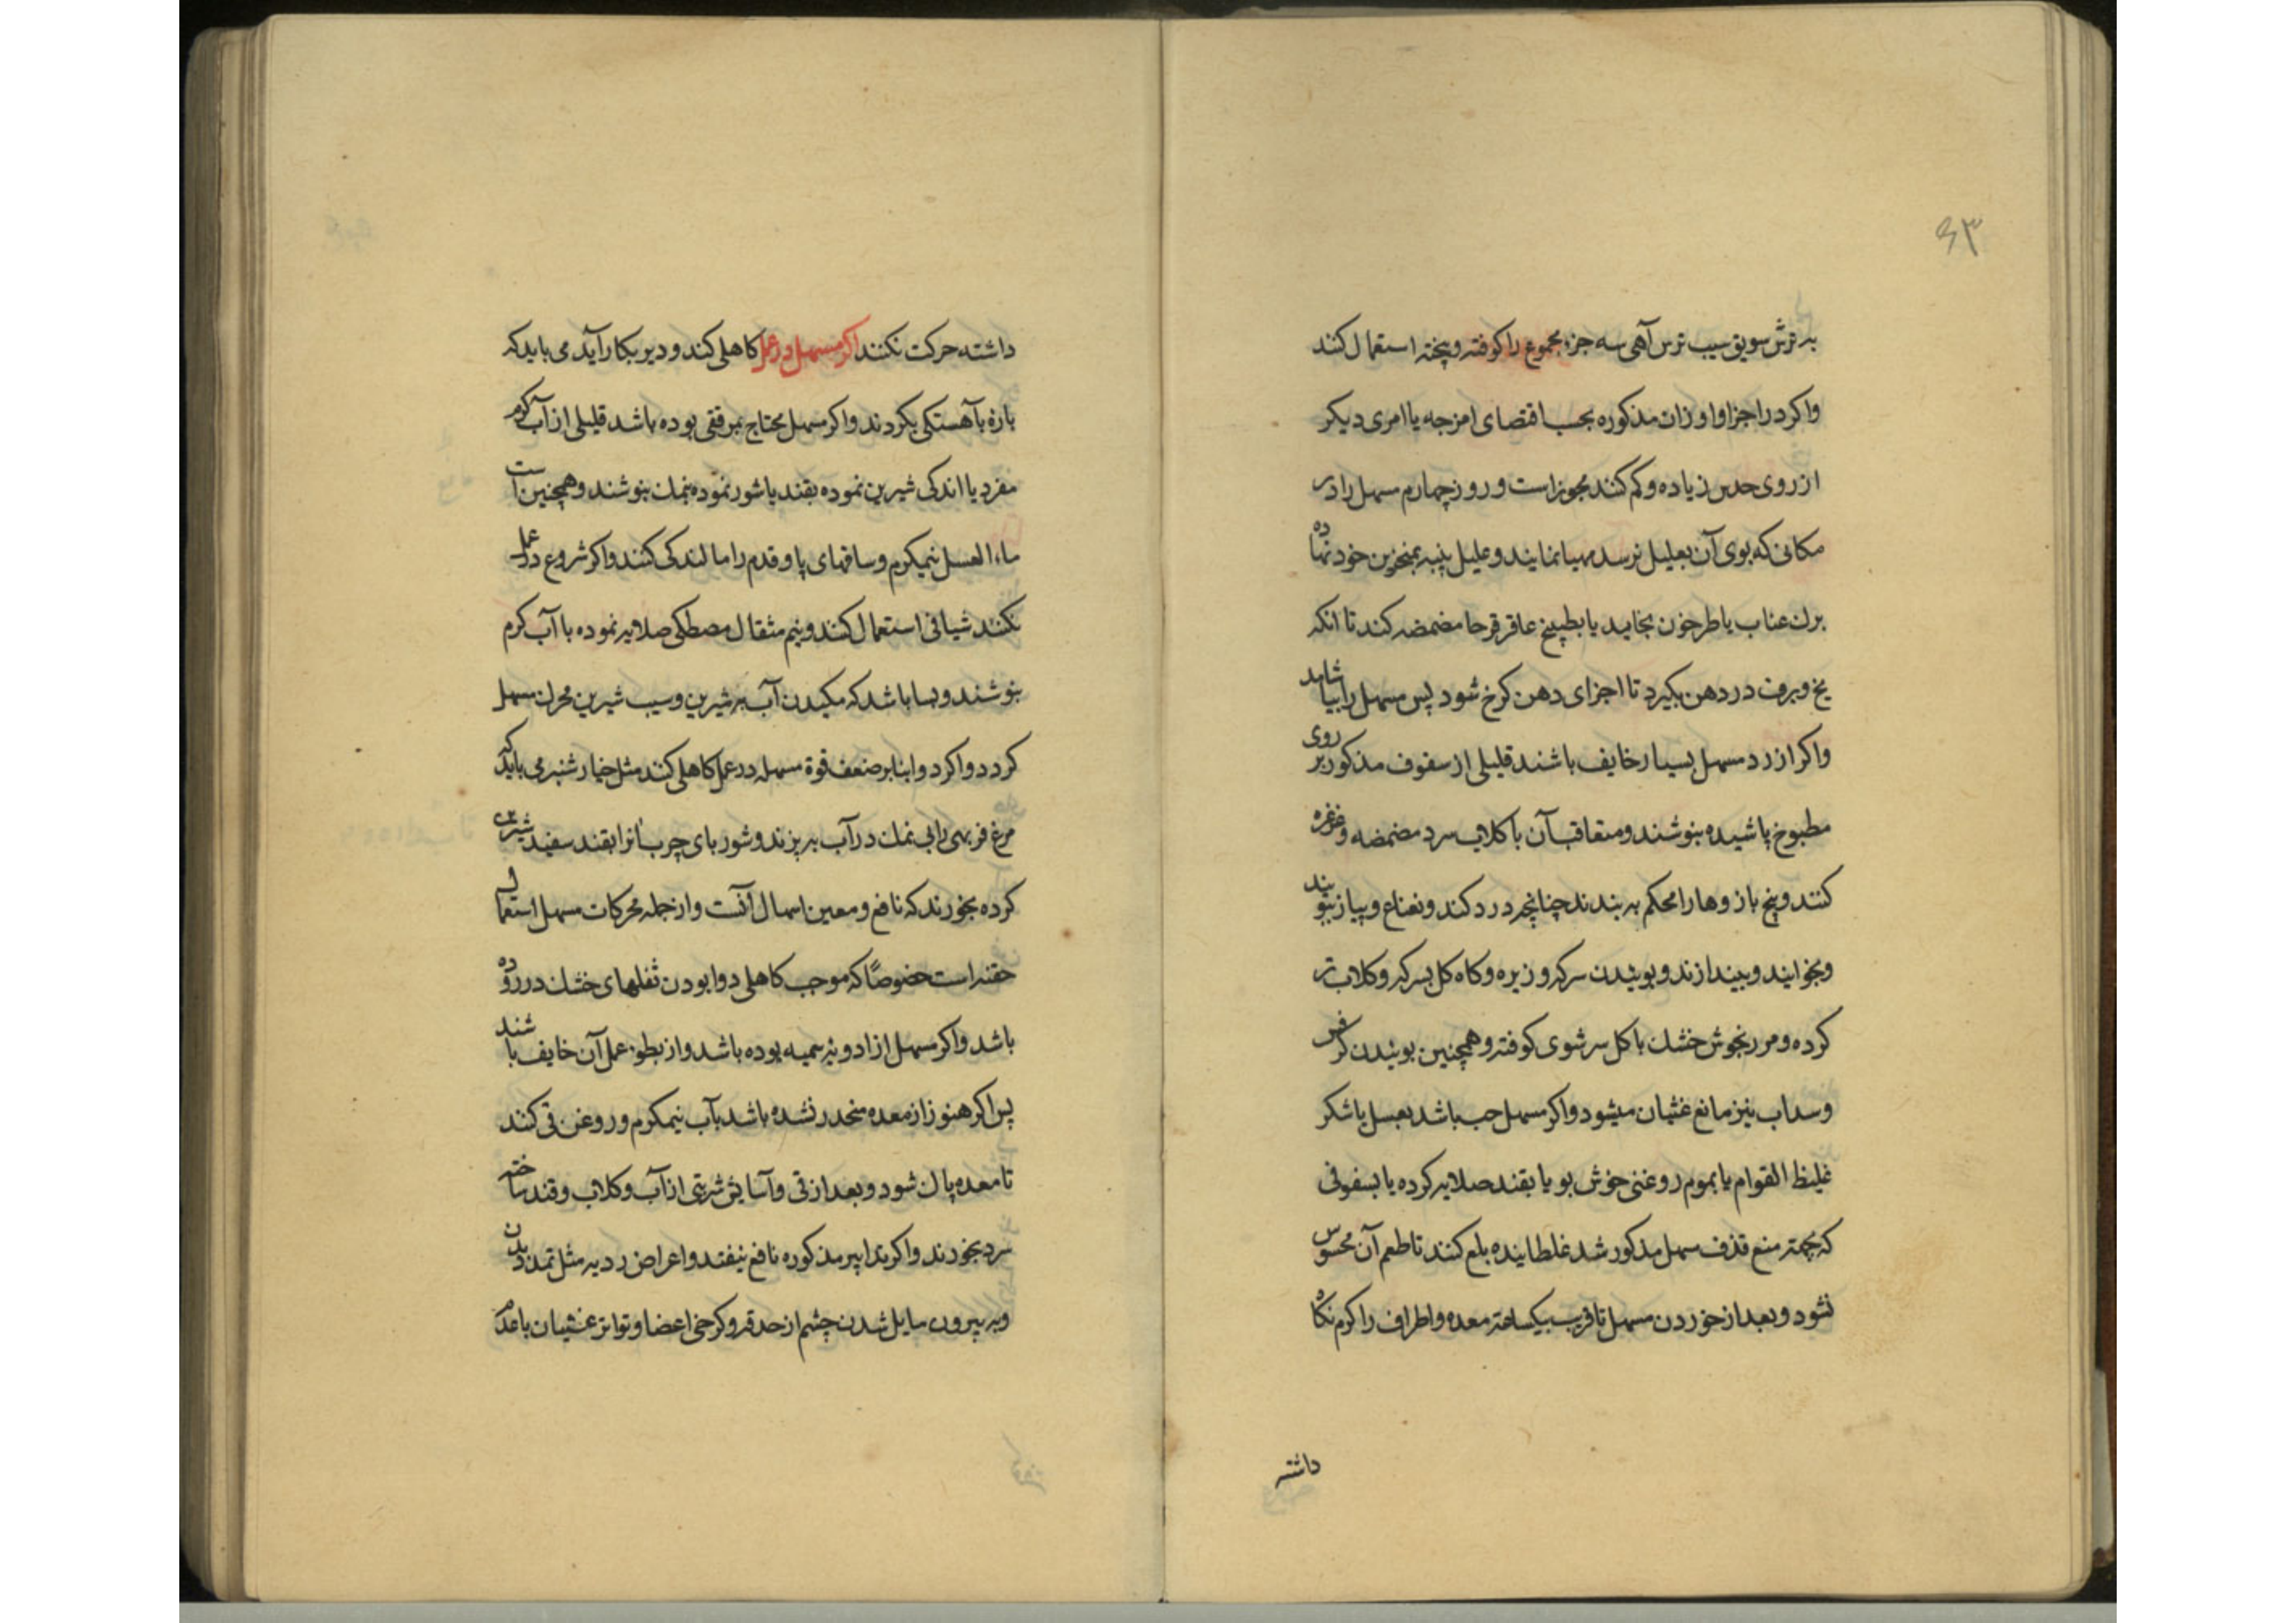 ۶۳
به ترش سویق سیب ترس آهی سه جزء مجموع را کوفته و پخته استعمال کنند
واکر در اجزا و اوزان مذکوره بحسب اقتضای امزجه یا امری دیکر
از روی حدس زیاده و کم کنند مجوز است و روز چهارم مسهل را در
مکانی که بوی آن بعلیل نرسد مهیا نمایند و علیل پنبه بمنخرین خود نهاده
برک عناب یا طرخون بخاید یا بطبیخ عاقرقرحا مضمضه کند تا انکه
یخ و برف در دهن بکیرد تا اجزای دهن کرخ شود پس مسهل را بیاشامد
واکر از رد مسهل بسیار خایف باشند قلیلی از سفوف مذکور بر روی
مطبوخ پاشیده بنوشند و متعاقب آن با کلاب سرد مضمضه و غرغره
کنند و بیخ بازوها را محکم به بندند چنانچه درد کند و نعناع و پیاز ببویند
وبخوایند و بیندازند و بوییدن سرکه و زیره و کاه کل بسرکه و کلاب تر
کرده و مرزنجوش خشک با کل سرشوی کوفته و همچنین بوییدن کرفس
وسداب نیز مانع غثیان میشود واکر مسهل حب باشد بعسل یا شکر
غلیظ القوام یا بموم روغنی خوش بو یا بقند صلایه کرده یا بسفوفی
که بجهته منع قذف مسهل مذکور شد غلطانیده بلع کنند تا طعم آن محسوس
نشود و بعد از خوردن مسهل تا قریب بیکساعته معده و اطراف را کرم نکاه
داشته
داشته حرکت نکنند اکر مسهل در عمل کاهلی کند و دیر بکار آید می باید که
پاره بآهستکی بکردند واکر مسهل محتاج بمرققی بوده باشد قلیلی از آب کرم
مفرد یا اندکی شیرین نموده بقند یا شور نموده بنمک بنوشند و همچنین است
ماء العسل نیمکرم و ساقهای پا و قدم را مالندکی کنند واکر شروع در عمل
نکند شیافی استعمال کنند و نیم مثقال مصطکی صلایه نموده با آب کرم
بنوشند و بسا باشد که مکیدن آب به شیرین و سیب شیرین محرک مسهل
کردد واکر دوا بنابر ضعف قوة مسهله در عمل کاهلی کند مثل خیارشنبر می باید که
مرغ فربهی را بی نمک در آب به پزند و شوربای چرب آنرا بقند سفید شیرین
کرده بخورند که نافع و معین اسهال آنست و از جمله محرکات مسهل استعمال
حقنه است خصوصًا که موجب کاهلی دوا بودن ثفلهای خشک در روده
باشد واکر مسهل از ادویهٔ سمیه بوده باشد و از بطوء عمل آن خایف باشند
پس اکر هنوز از معده منحدر نشده باشد بآب نیمکرم و روغن قی کنند
تا معده پاک شود و بعد از قی و آسایش شربتی از آب و کلاب و قند ساخته
سرد بخورند واکر تدابیر مذکوره نافع نیفتد و اعراض ردیه مثل تمدد بدن
وبه بیرون مایل شدن چشم از حدقه و کرخی اعضا و تواتر غشیان با عدم